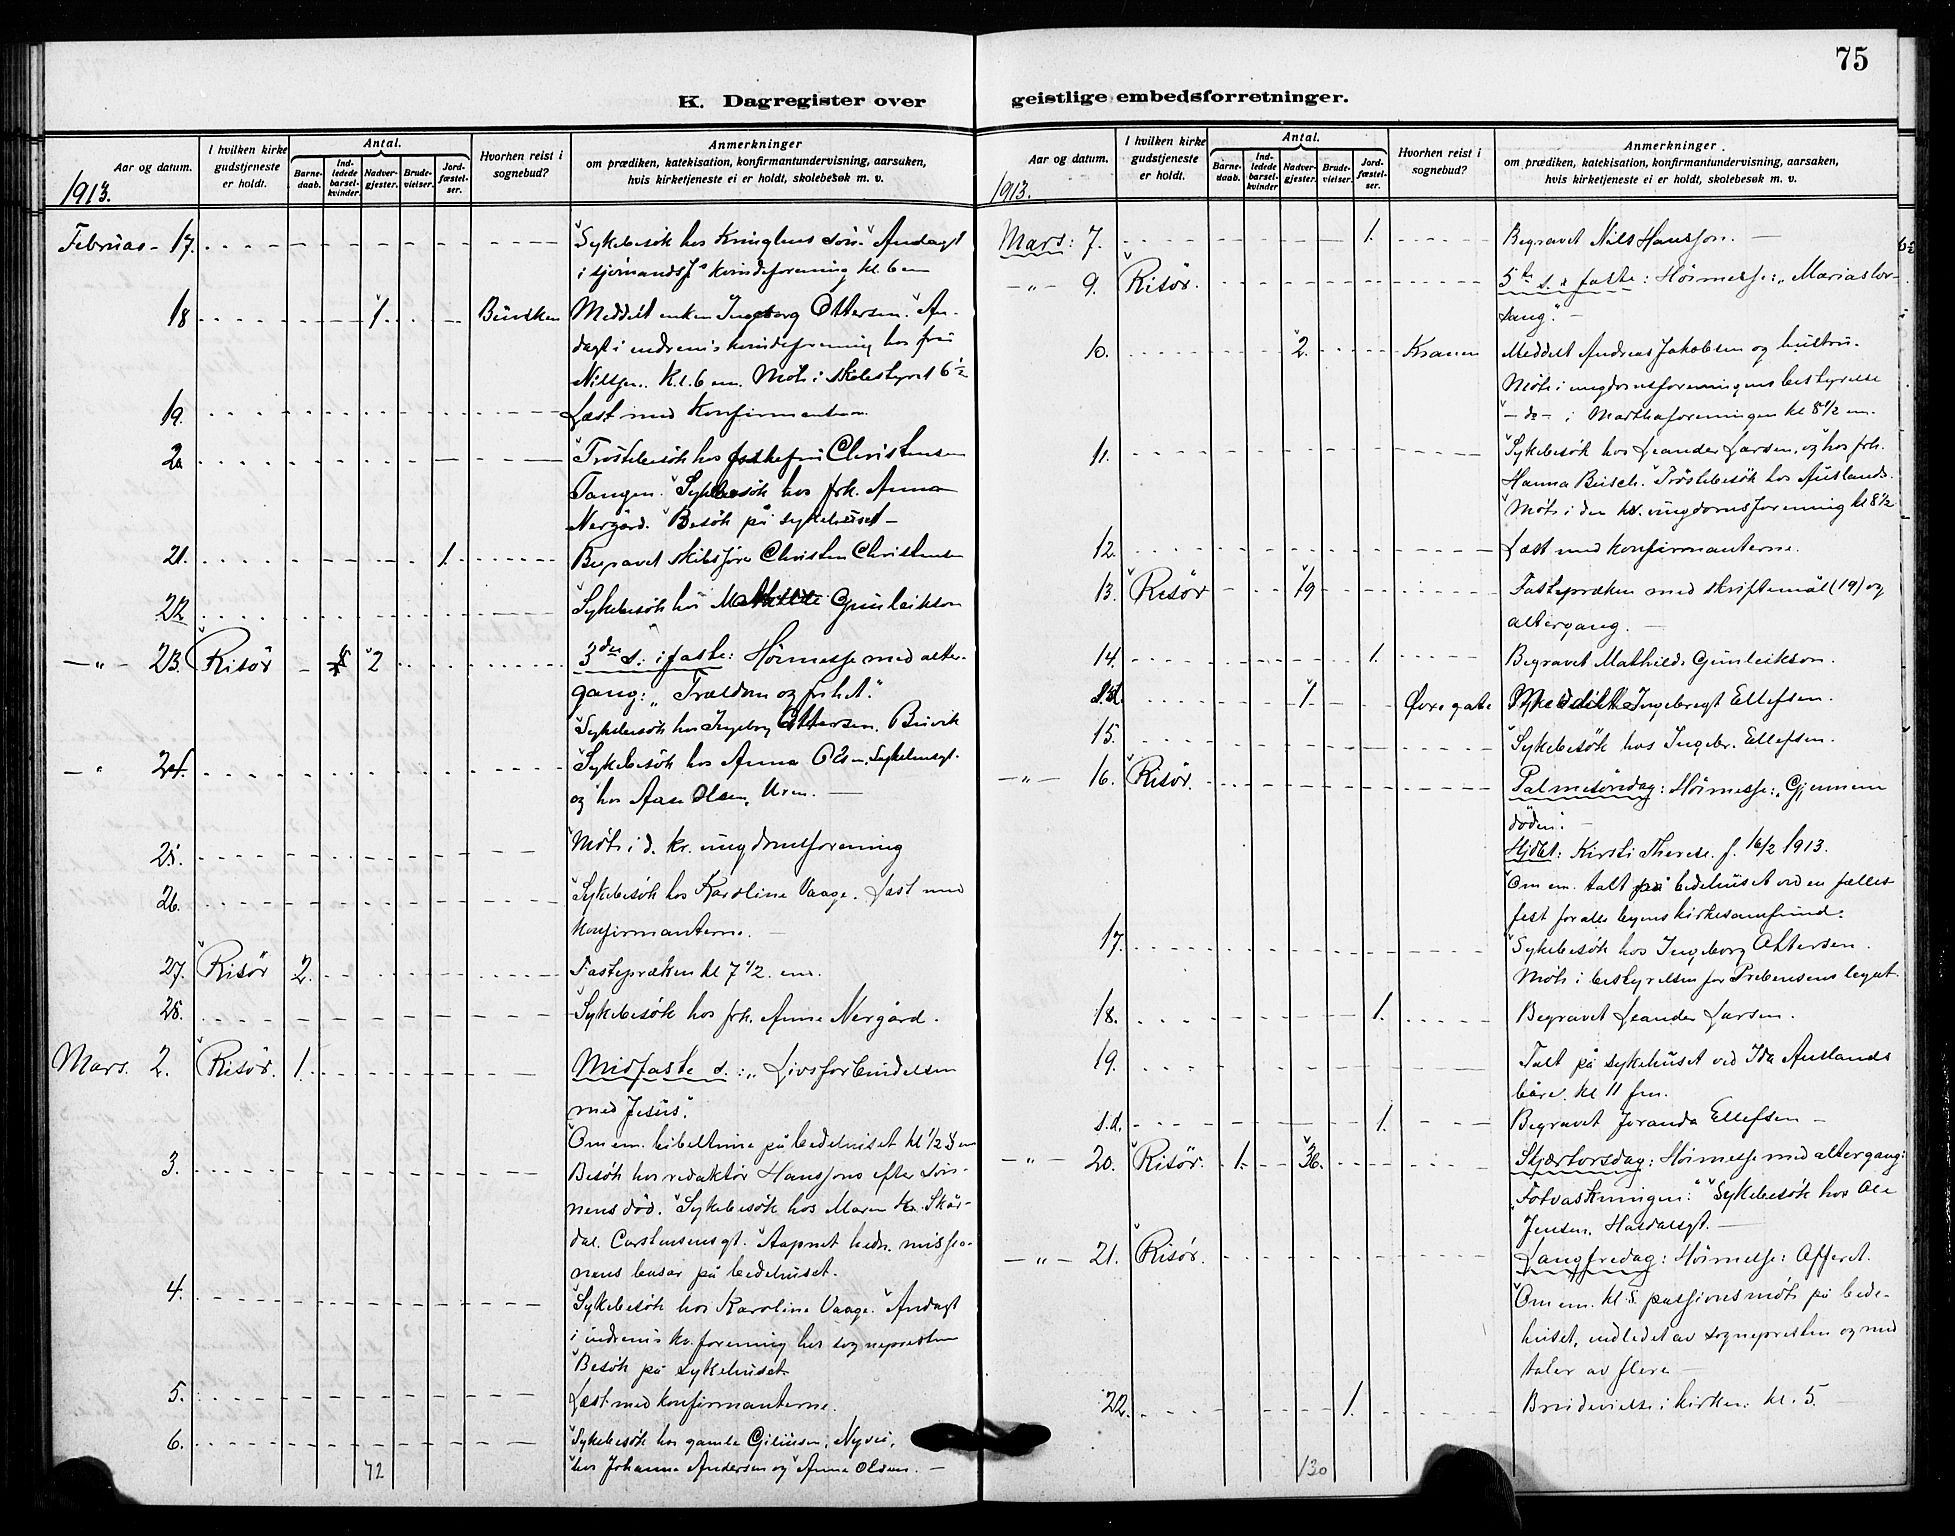 75
K. Dagregister over geistlige embedsforretninger.
Aar og datum.
I hvilken kirke gudstjeneste er holdt.
Antal.
Barne-daab.
Ind-ledede barsel-kvinder
Nadver-gjester.
Brude-vielser.
Jord-fæstel-ser.
Hvorhen reist i sognebud?
Anmerkninger
om prædiken, katekisation, konfirmantundervisning, aarsaken,
hvis kirketjeneste ei er holdt, skolebesøk m. v.
1913.
Februar - 17. Sykebesök hos
Andagt
i sjömandsf. kvindeforening kl. 6 em
18 1. Buvikin Meddelt enken Ingeborg Ottersen. An-
dagt i indremis kvindeforening hos fru
Nilsen. Kl. 6 em. Möte i skolestyret 6 1/2
19. Læst med konfirmanterne
20 Tröstebesök hos Christensen
Tangen. Sykebesök hos frk. Anna
Nergård. Besök på sykehuset -
21. 1. Begravet skibsförer Christen Christensen
22 Sykebesök hos Mathilde Gunleikson
- " - 23. Risör 2 3die s. i faste: Höimesse med alter-
gang: "Trældom og frihet."
Sykebesök hos Ingeborg Ottersen, Buvik
- " 24. Sykebesök hos Anna Olsen, Sykehusgt.
og hos Aase Olsen, Uren. -
25. Möte i d. kr. ungdomsforening
26. Sykebesök hos Karoline Vaage. Læst med
konfirmanterne. -
27. Risör 2. Fastepræken kl 7 1/2. em.
28. Sykebesök hos frk. Anna Nergård.
Mars. 2. Risör. 1. Midfaste s.: "Livsforbindelsen
med Jesus".
Om em. bibeltime på bedehuset kl
3. Besök hos redaktör Hanssons efter sön-
nens död. Sykebesök hos Maren Kr. Skår-
dal. Carstensensgt. Aapnet hedn. missjo-
nens basar på bedehuset.
4. Sykebesök hos Karoline Vaage. Andagt
i indremis kv. forening hos sognepresten
Besök på sykehuset
5. Læst med konfirmanterne.
6. Sykebesök hos gamle
hos Johanne Andersen og Anna Olsen. -
72
K. Dagregister over geistlige embedsforretninger.
Aar og datum.
I hvilken kirke gudstjeneste er holdt.
Antal.
Barne-daab.
Ind-ledede barsel-kvinder
Nadver-gjester.
Brude-vielser.
Jord-fæstel-ser.
Hvorhen reist i sognebud?
Anmerkninger.
om prædiken, katekisation, konfirmantundervisning, aarsaken,
hvis kirketjeneste ei er holdt, skolebesøk m. v.
1913.
Mars: 7. 1. Begravet Nils Hansson. -
- " - 9. Risör. 5te s. i faste: Höimesse: "Marias lov-
sang." -
10. 2. Kranen Meddelt Andreas Jakobsen og hustru.
Möte i ungdomsforeningens bestyrelse
- do - i Marthaforeningen kl 8 1/2 em.
11. Sykebesök hos Leander Larsen, og hos frk.
Hanna Busch. Tröstebesök hos Auslands.
Möte i den kr. ungdomsforening kl 8 1/2
12. Læst med konfirmanterne.
13. Risör 19 Fastepræken med skriftemål (19) og
altergang. -
14. 1. Begravet Mathilde Gunleikson.
s.d. 1. Övregate Meddelt Ingebregt Ellefsen.
15. Sykebesök hos Ingebr. Ellefsen.
- " - 16. Risör. Palmesöndag: Höimesse: "Gjennem
döden". -
Hjdbt: Kirsti Therese. f. 16/2 1913.
Om em. talt på bedehuset ved en fælles-
fest for alle byens kirkesamfund.
17. Sykebesök hos Ingeborg Ottersen.
Möte i bestyrelsen for Prebensens legat.
18. 1. Begravet Leander Larsen.
19. Talt på sykehuset ved Ida Auslands
båre. kl 11 fm.
s.d. 1. Begravet Joranda Ellefsen -
- " - 20. Risör. 1. 36. Skjærtorsdag: Höimesse med altergang:
"Fotvaskningen." Sykebesök hos Ole
Jensen. Hasdalsgt. -
- " - 21. Risör. Langfredag: Höimesse: Offeret.
Om em. kl 5. passionsmöte på bede-
huset, indledet av sognepresten og med
taler av flere -
22. 1. Brudevielse i kirken. kl. 5. -
130